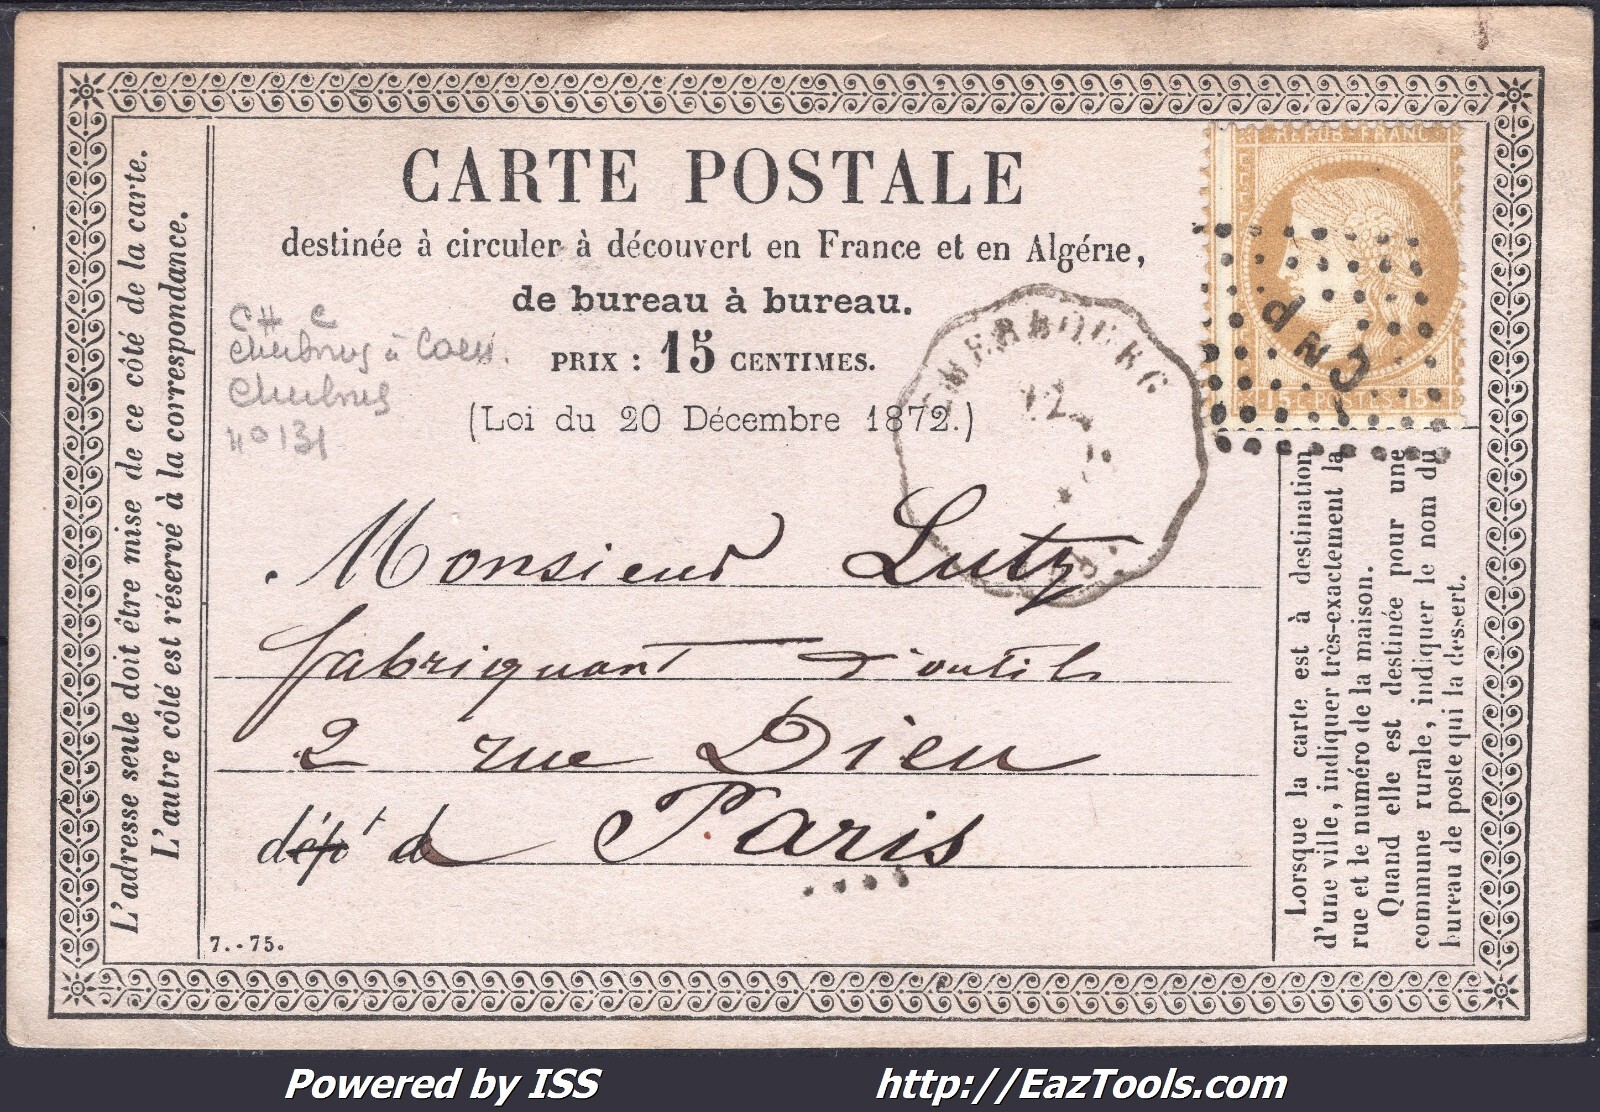 CARTE POSTALE
destinée à circuler à découvert en France et en Algérie,
de bureau à bureau.
PRIX : 15 CENTIMES.
(Loi du 20 Décembre 1872.)
L'adresse seule doit être mise de ce côté de la carte.
L'autre côté est réservé à la correspondance.
REPUB FRANC
15 C POSTES 15
CHERBOURG
Cherbourg à Caen.
Cherbourg
n° 131
Monsieur Lutz
fabriquant d'outils
2 rue Dieu
Paris
Lorsque la carte est à destination
d'une ville, indiquer très-exactement la
rue et le numéro de la maison.
Quand elle est destinée pour une
commune rurale, indiquer le nom du
bureau de poste qui la dessert.
7.-75.
Powered by ISS
http://EazTools.com